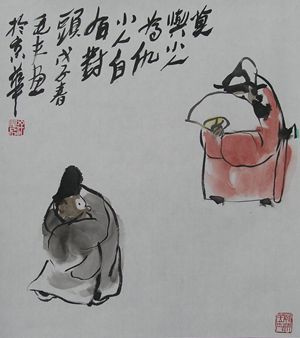 莫
與小人
為仇
小人自
有對
頭戊子春
画
於京華